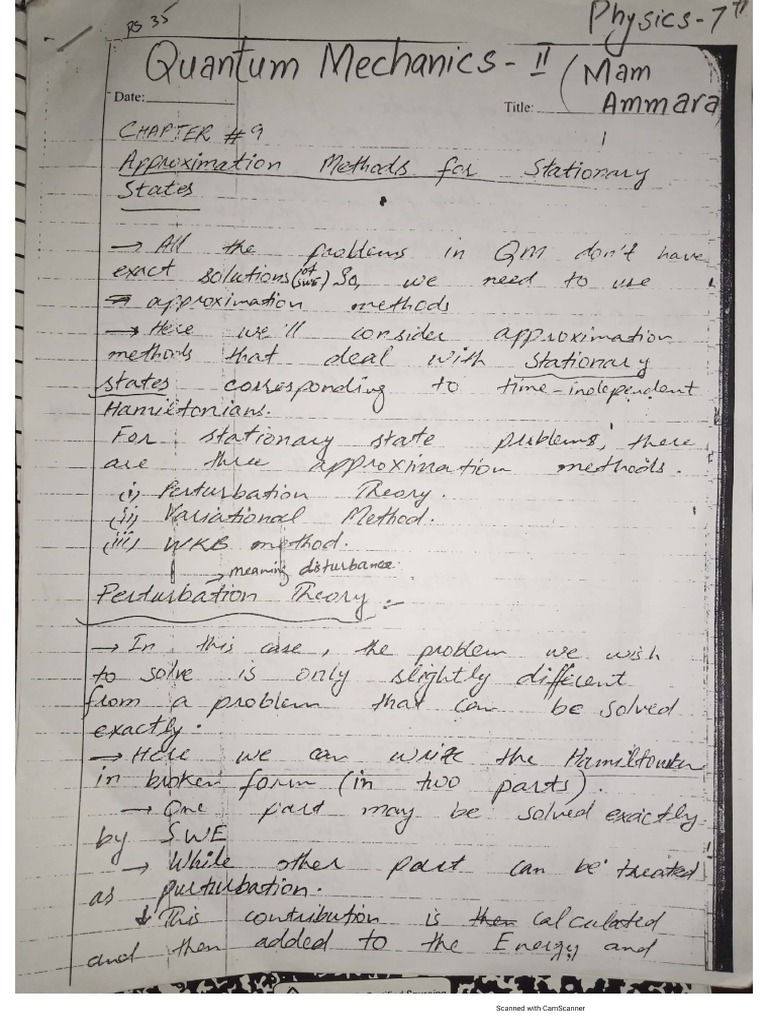 RS 35
Physics-7th
Quantum Mechanics-II (Mam Ammara
Date:
Title:
CHAPTER #9
Approximation Methods for Stationary
States
→ All the problems in QM don't have
exact solutions (of SWE) So, we need to use
→ approximation methods
→ Here we'll consider approximation
methods that deal with stationary
states corresponding to time-independent
Hamiltonians.
For stationary state problems, there
are three approximation methods.
(i) Perturbation Theory.
(ii) Variational Method.
(iii) WKB method.
→ meaning disturbance
Perturbation Theory:-
→ In this case, the problem we wish
to solve is only slightly different
from a problem that can be solved
exactly.
→ Here we can write the Hamiltonian
in broken form (in two parts).
→ One part may be solved exactly
by SWE
→ While other part can be treated
as perturbation.
↓ This contribution is then calculated
and then added to the Energy and
Scanned with CamScanner